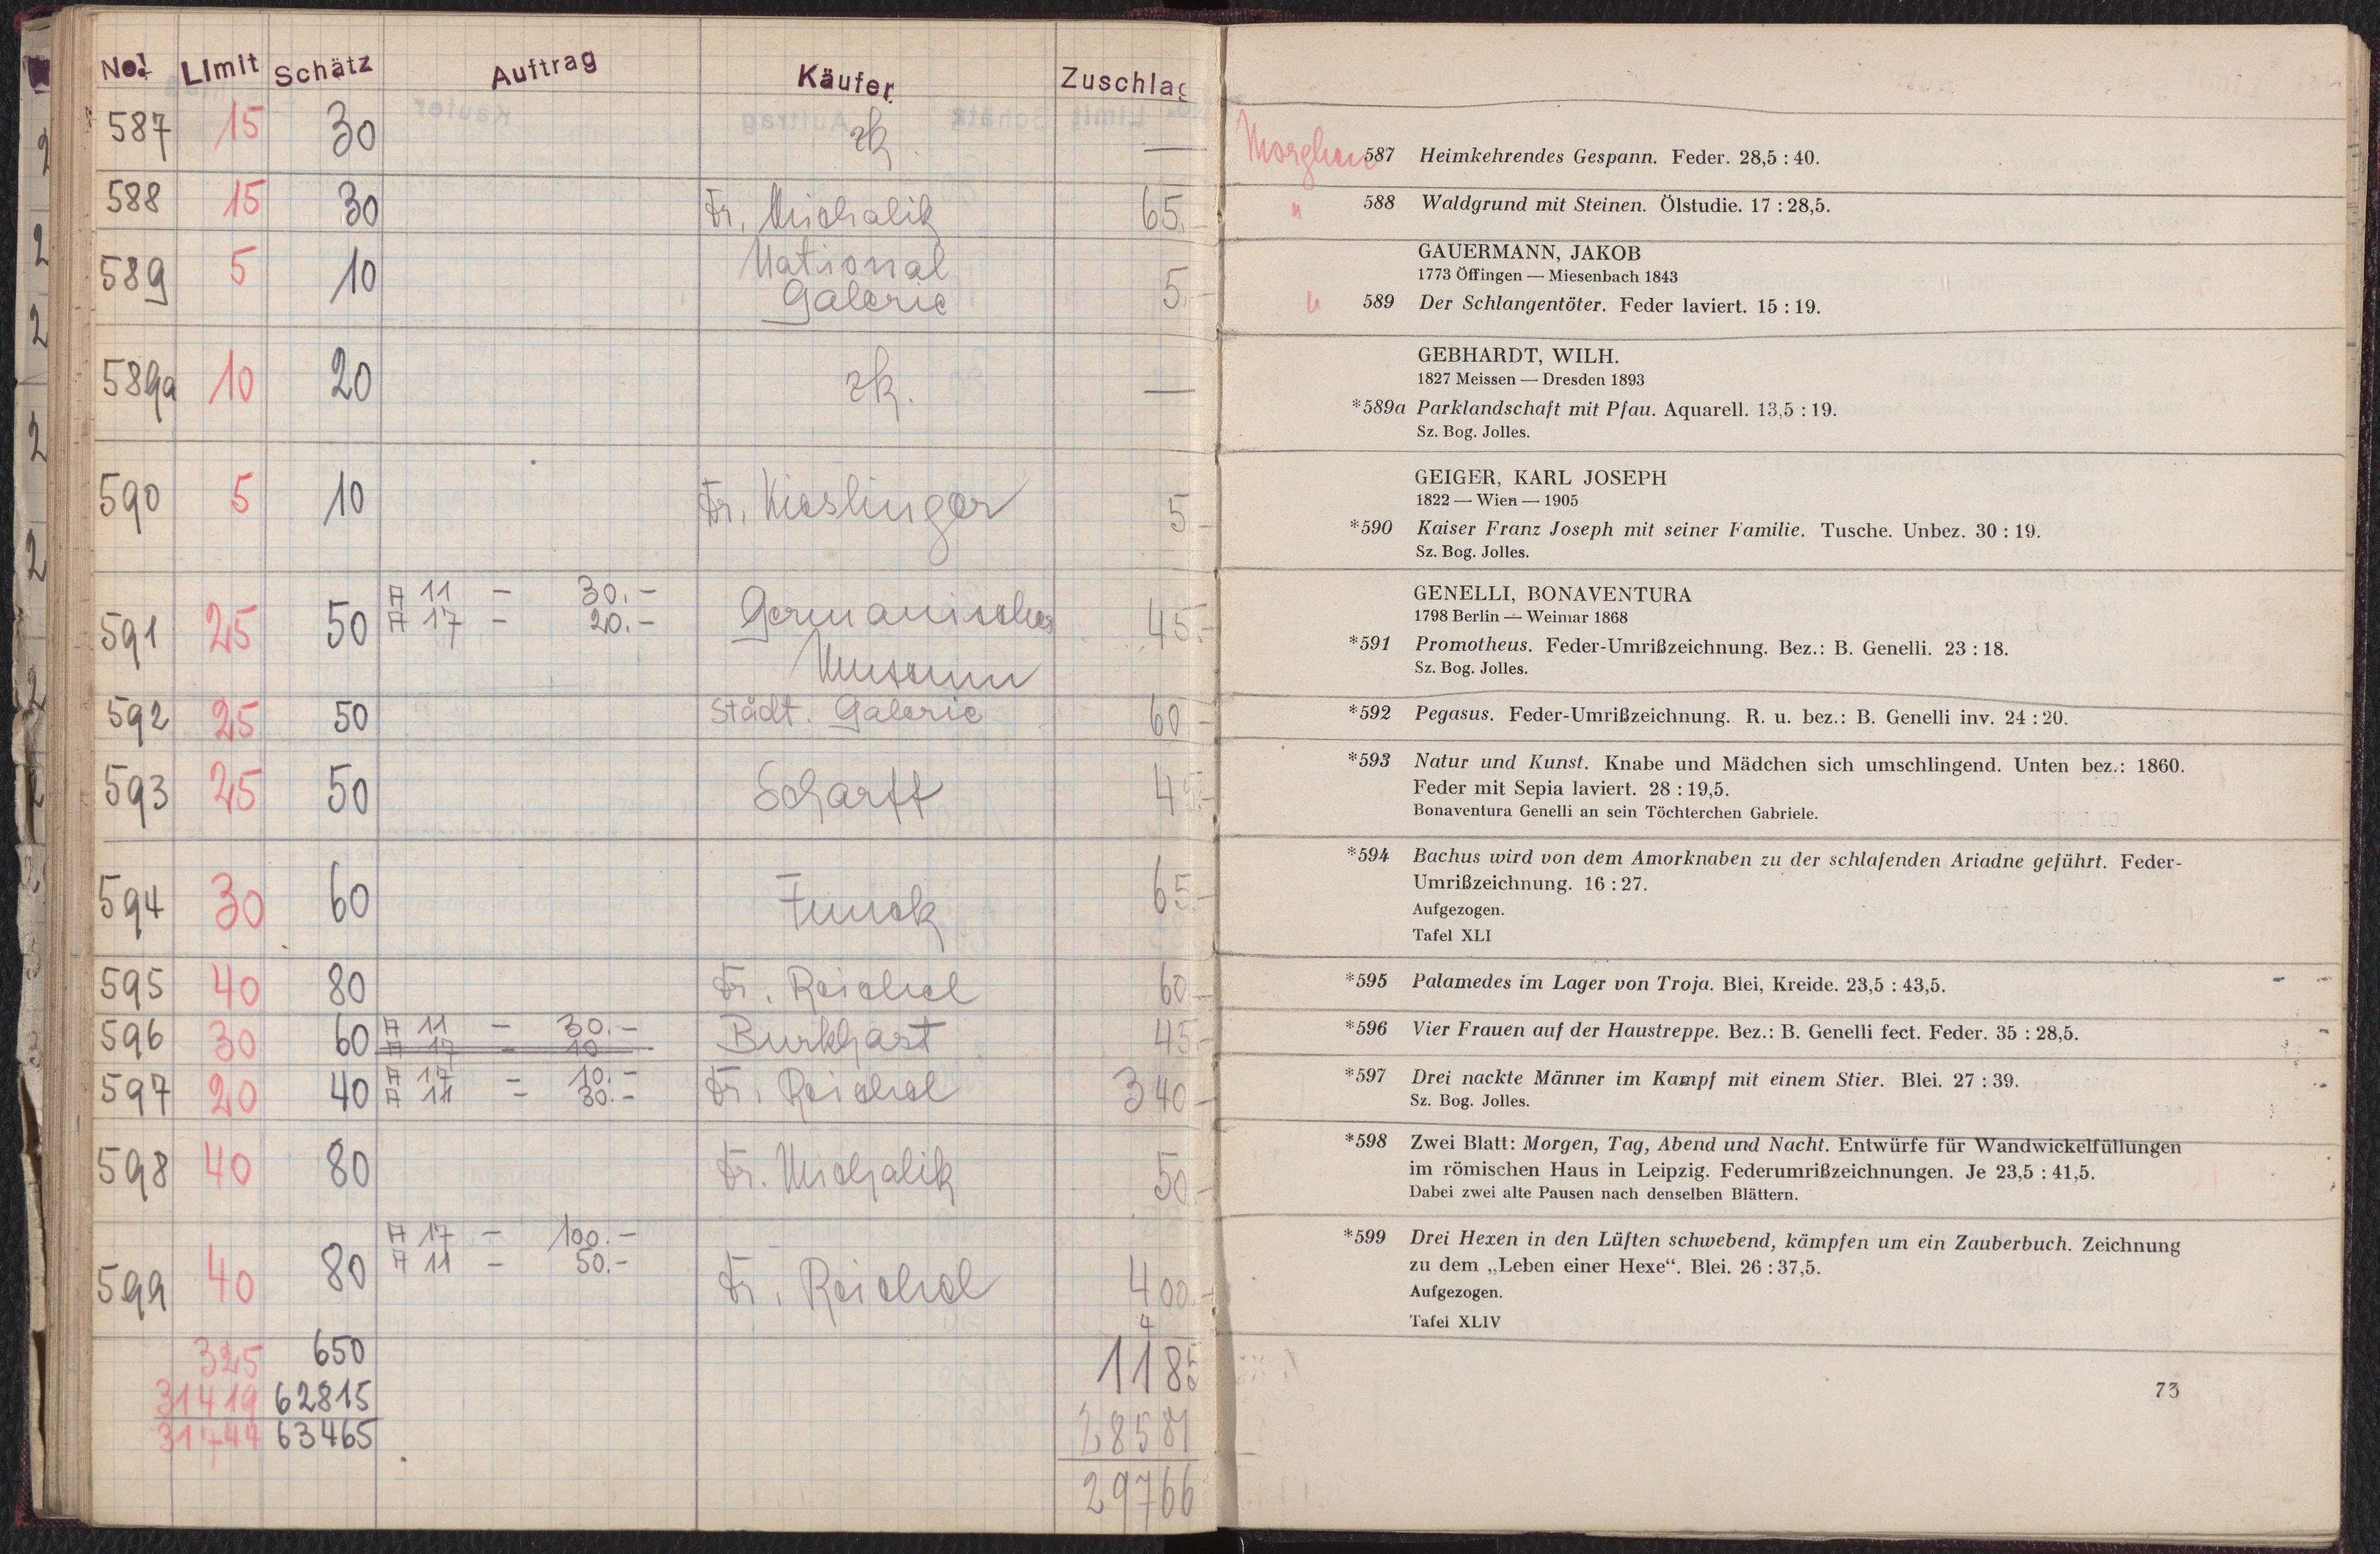 No. Limit Schätz Auftrag Käufer Zuschlag
587 15 30 zk. —
588 15 30 Dr. Michalik 65.-
589 5 10 National Galerie 5.-
589a 10 20 zk. —
590 5 10 Dr. Kieslinger 5.-
591 25 50 A 11 - 30.- Germanisches 45.-
A 17 - 20.-
Museum
592 25 50 Städt. Galerie 60.-
593 25 50 Scharff 45.-
594 30 60 Funck 65.-
595 40 80 Dr. Reichel 60.-
596 30 60 A 11 - 30.- Burkhart 45.-
A 17 - 10
597 20 40 A 17 - 10.- Dr. Reichel 340.-
A 11 - 30.-
598 40 80 Dr. Michalik 50.-
599 40 80 A 17 - 100.- Dr. Reichel 400.-
A 11 - 50.-
325 650 1185
31419 62815 28581
31744 63465 29766
587 Heimkehrendes Gespann. Feder. 28,5 : 40.
" 588 Waldgrund mit Steinen. Ölstudie. 17 : 28,5.
GAUERMANN, JAKOB
1773 Öffingen — Miesenbach 1843
" 589 Der Schlangentöter. Feder laviert. 15 : 19.
GEBHARDT, WILH.
1827 Meissen — Dresden 1893
*589a Parklandschaft mit Pfau. Aquarell. 13,5 : 19.
Sz. Bog. Jolles.
GEIGER, KARL JOSEPH
1822 — Wien — 1905
*590 Kaiser Franz Joseph mit seiner Familie. Tusche. Unbez. 30 : 19.
Sz. Bog. Jolles.
GENELLI, BONAVENTURA
1798 Berlin — Weimar 1868
*591 Promotheus. Feder-Umrißzeichnung. Bez.: B. Genelli. 23 : 18.
Sz. Bog. Jolles.
*592 Pegasus. Feder-Umrißzeichnung. R. u. bez.: B. Genelli inv. 24 : 20.
*593 Natur und Kunst. Knabe und Mädchen sich umschlingend. Unten bez.: 1860.
Feder mit Sepia laviert. 28 : 19,5.
Bonaventura Genelli an sein Töchterchen Gabriele.
*594 Bachus wird von dem Amorknaben zu der schlafenden Ariadne geführt. Feder-
Umrißzeichnung. 16 : 27.
Aufgezogen.
Tafel XLI
*595 Palamedes im Lager von Troja. Blei, Kreide. 23,5 : 43,5.
*596 Vier Frauen auf der Haustreppe. Bez.: B. Genelli fect. Feder. 35 : 28,5.
*597 Drei nackte Männer im Kampf mit einem Stier. Blei. 27 : 39.
Sz. Bog. Jolles.
*598 Zwei Blatt: Morgen, Tag, Abend und Nacht. Entwürfe für Wandwickelfüllungen
im römischen Haus in Leipzig. Federumrißzeichnungen. Je 23,5 : 41,5.
Dabei zwei alte Pausen nach denselben Blättern.
*599 Drei Hexen in den Lüften schwebend, kämpfen um ein Zauberbuch. Zeichnung
zu dem „Leben einer Hexe“. Blei. 26 : 37,5.
Aufgezogen.
Tafel XLIV
73